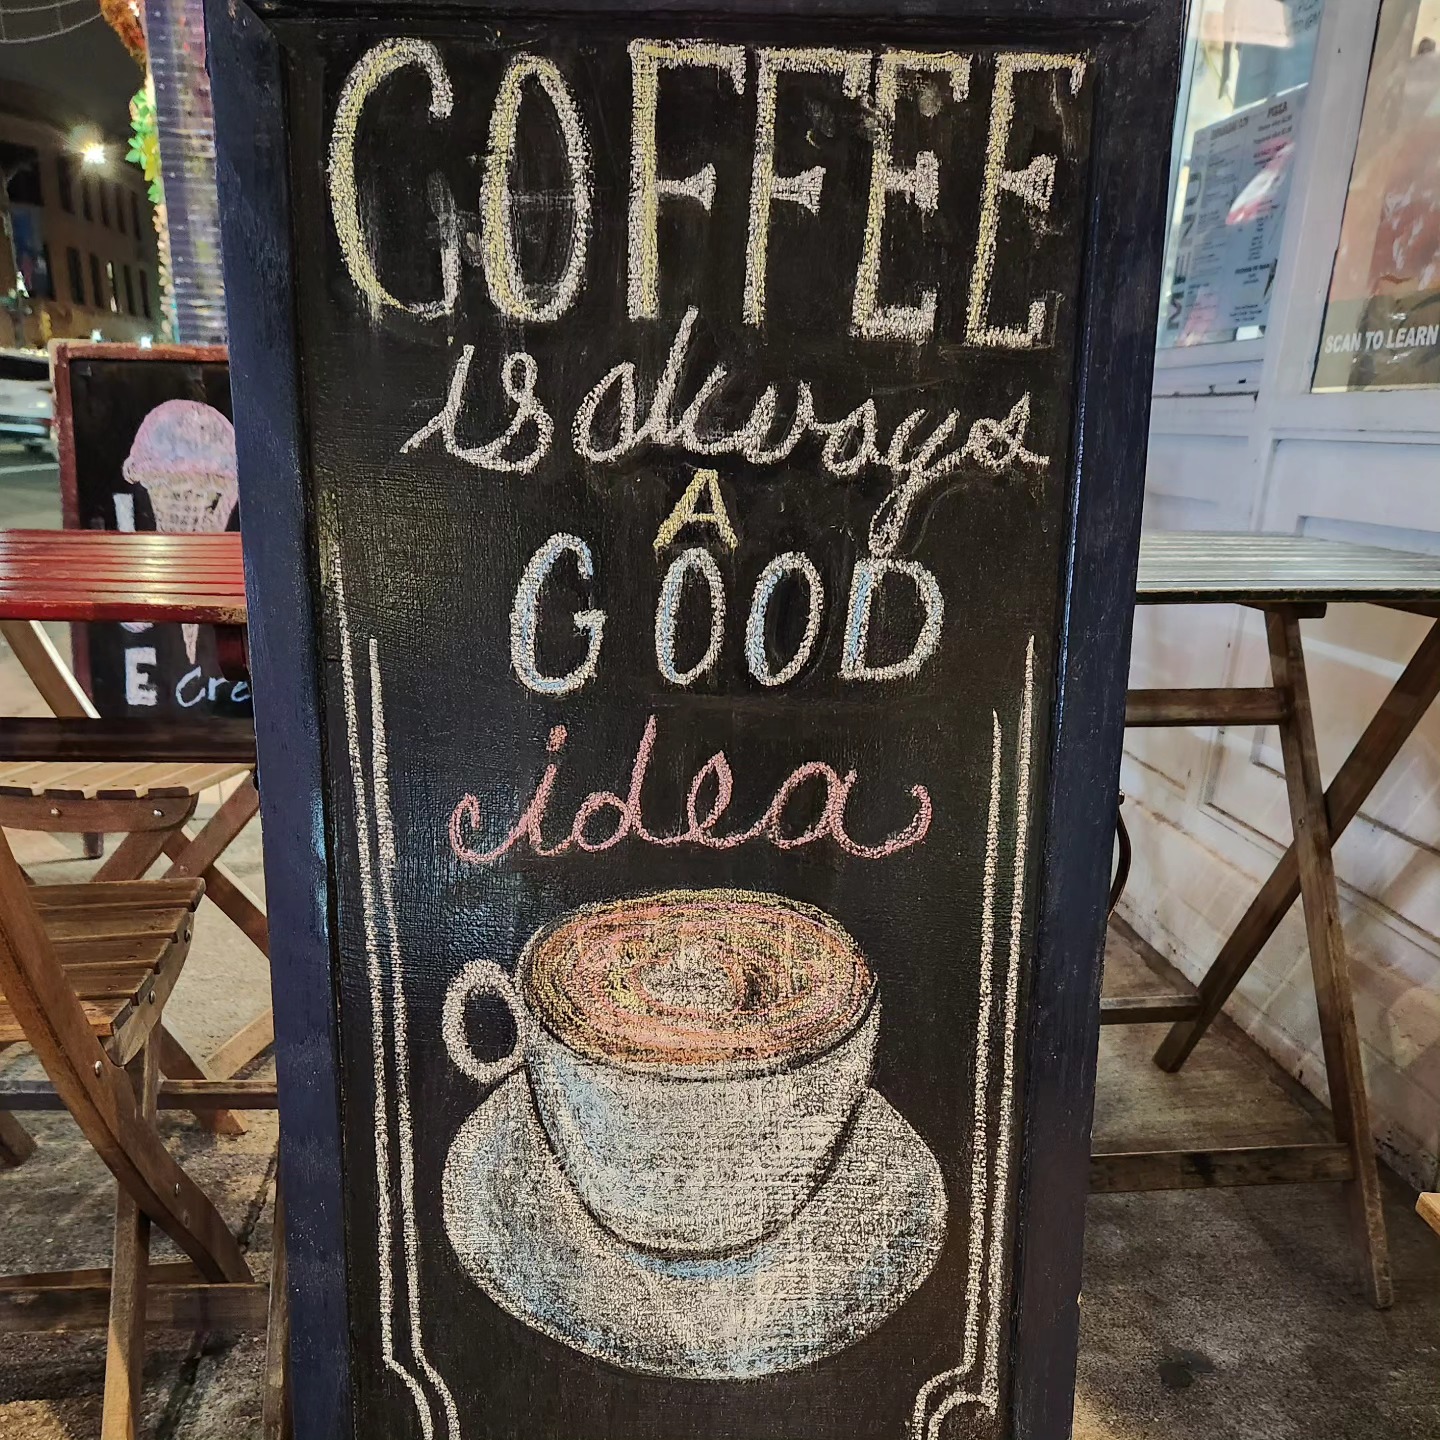 COFFEE
is always
A
GOOD
idea
E Cre
PIZZA
SCAN TO LEARN